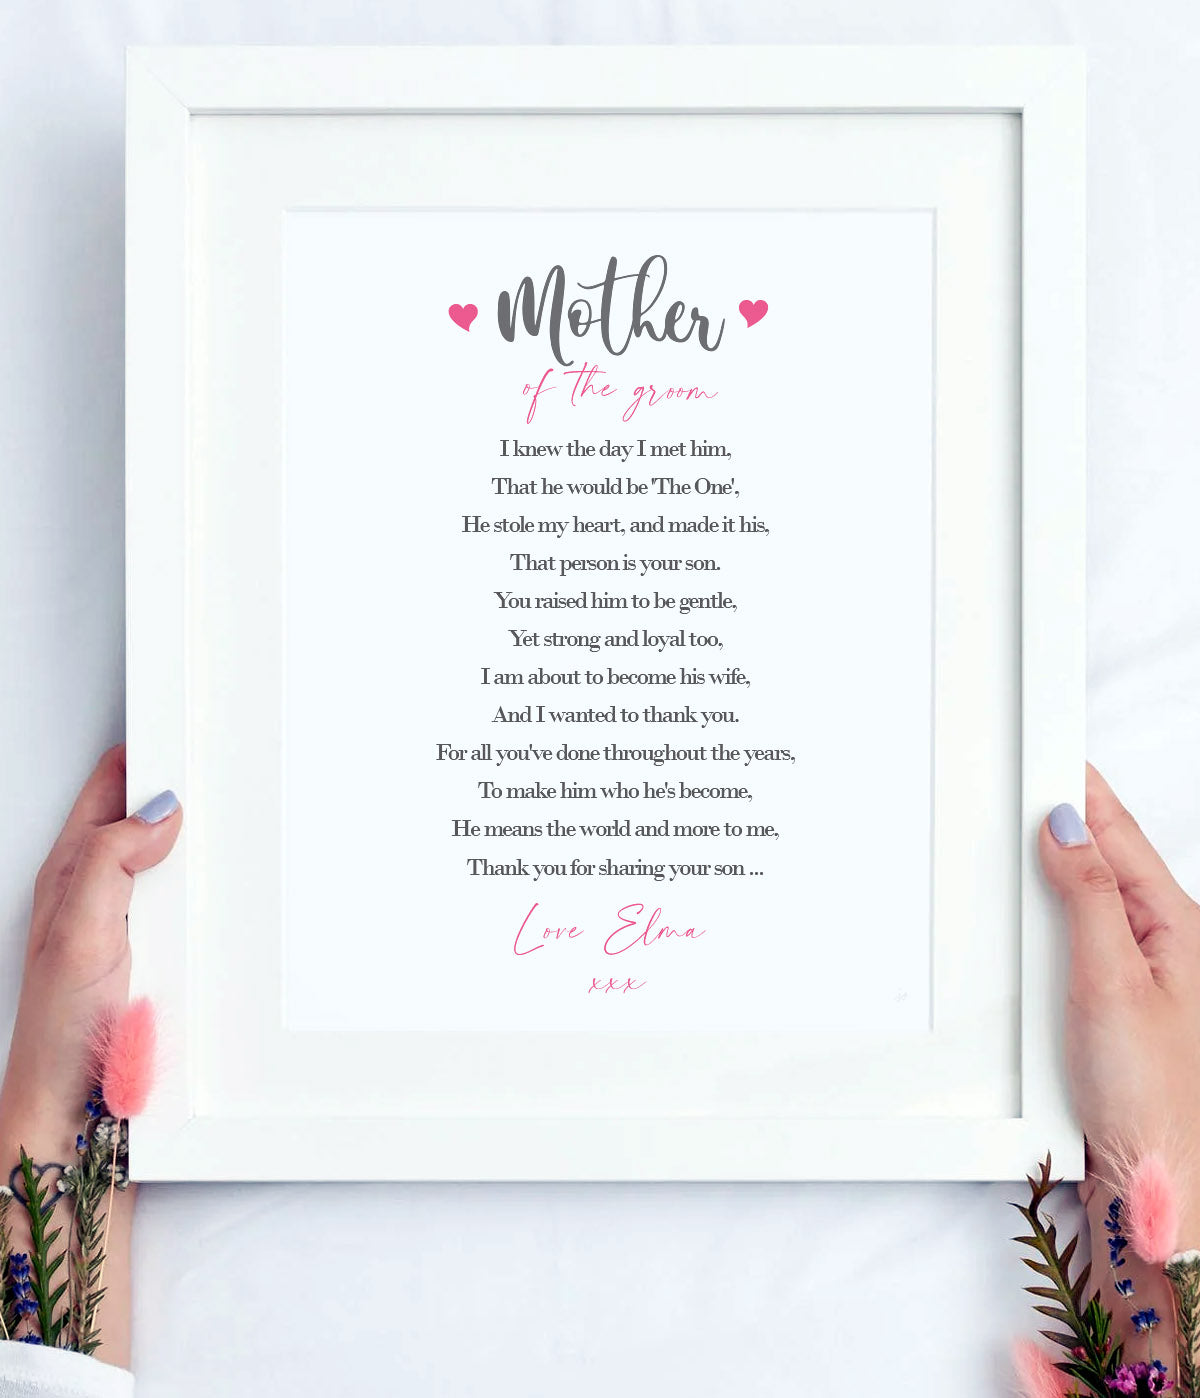 Mother
of the groom
I knew the day I met him,
That he would be 'The One',
He stole my heart, and made it his,
That person is your son.
You raised him to be gentle,
Yet strong and loyal too,
I am about to become his wife,
And I wanted to thank you.
For all you've done throughout the years,
To make him who he's become,
He means the world and more to me,
Thank you for sharing your son ...
Love Elma
xxx